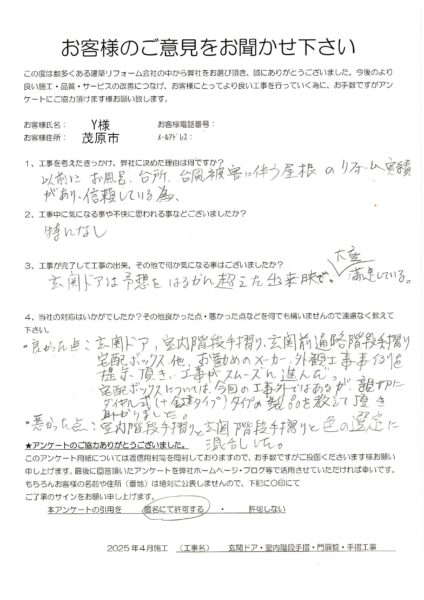 お客様のご意見をお聞かせ下さい
この度は数多くある建築リフォーム会社の中から弊社をお選び頂き、誠にありがとうございました。今後のより
良い施工・品質・サービスの改善につなげ、お客様にとってより良い工事を行っていく為に、お手数ですがアン
ケートにご協力頂けます様お願い致します。
お客様氏名： Y様 お客様電話番号：
お客様住所： 茂原市 メールアドレス：
1、工事を考えたきっかけ、弊社に決めた理由は何ですか?
以前に お風呂、台所、台風被害に伴う屋根 のリフォーム実績
があり、信頼している為、
2、工事中に気になる事や不快に思われる事などございましたか?
特になし
3、工事が完了して工事の出来、その他で何か気になる事はございましたか?
玄関ドアは予想をはるかに超えた出来映で、大変満足している。
4、当社の対応はいかがでしたか?その他良かった点・悪かった点などを何でも構いませんので遠慮なく教えて
下さい。
・良かった点：玄関ドア、室内階段手摺り、玄関前通路階段手摺り
宅配ボックス他、お勧めのメーカー、外観工事事例を
提示頂き、工事がスムーズに進んだ。
宅配ボックスについては、今回の工事外ではあるが、親切に
ダイヤル式（+ 錠タイプ）タイプの製品を教えて頂き
助かりました。
・悪かった点：室内階段手摺りと玄関階段手摺りと色の選定に
混乱した。
★アンケートのご協力ありがとうございました。
このアンケート用紙については返信用封筒を同封しておりますので、お手数ですがご投函くださいます様お願い
申し上げます。最後に回答頂いたアンケートを弊社ホームページ・ブログ等で活用させていただければ幸いです。
もちろんお客様の名前や住所（番地）は絶対に公表しませんので、下記に〇印にて
ご了承のサインをお願い申し上げます。
本アンケートの引用を （匿名にて許可する） ・ 許可しない
2025年4月施工 （工事名） 玄関ドア・室内階段手摺・門扉錠・手摺工事